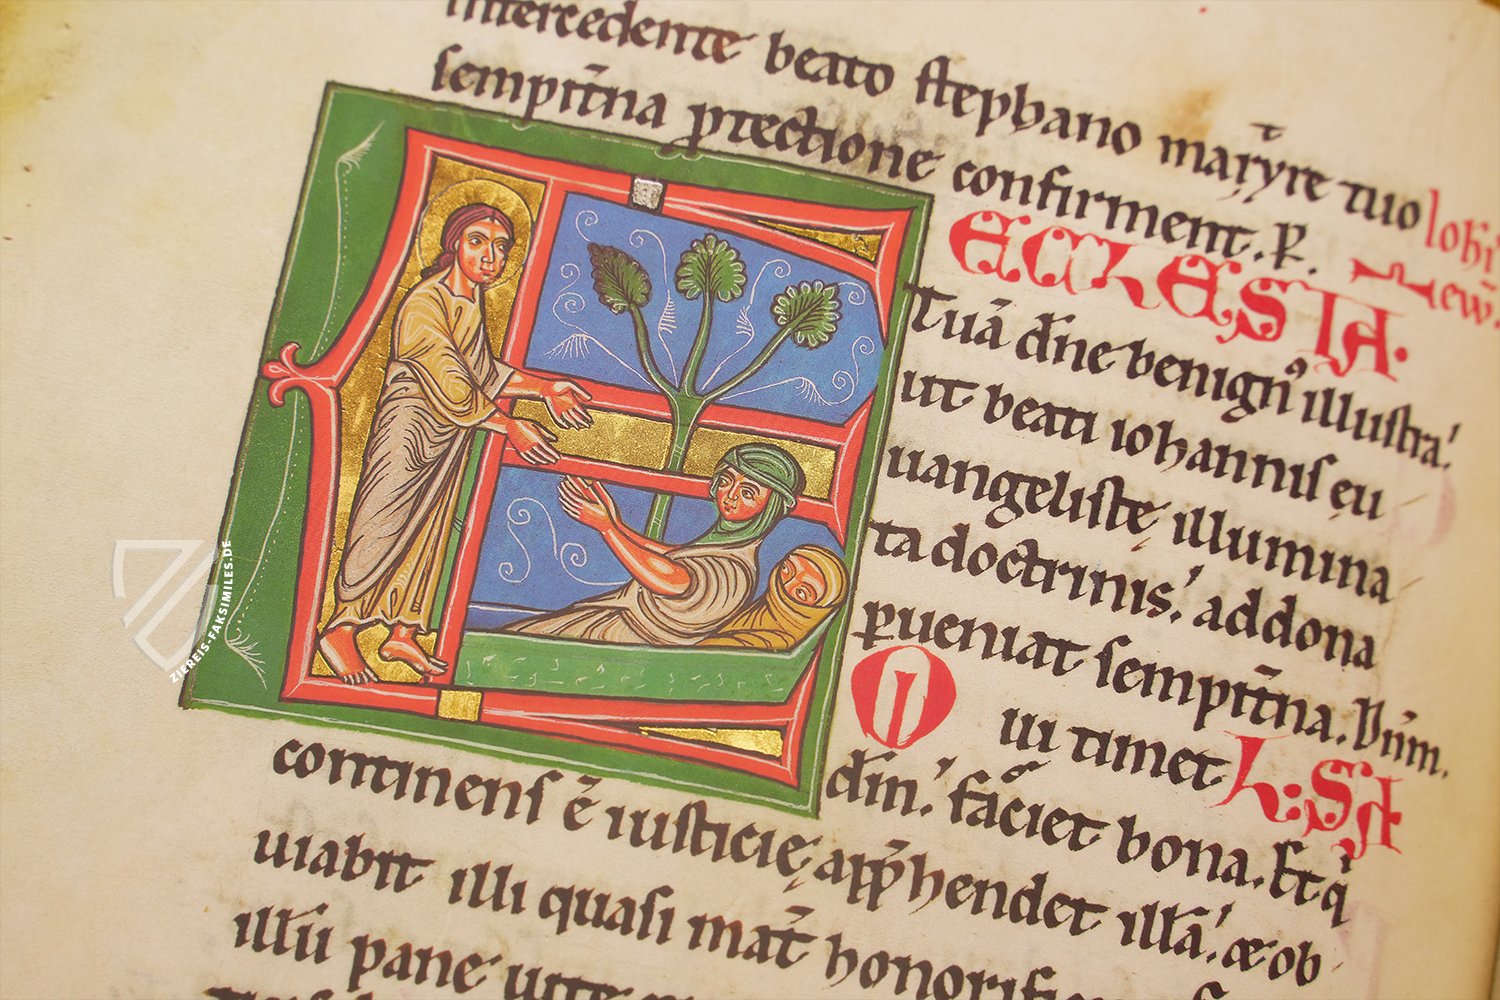 intercedente beato stephano mar̄tyre tuo
semp̄it̄na ꝓtectione confirment. P̄. Iohi
ECCLESIA ew̄.
Tuā dn̄e benignꝰ illustra.
ut beati iohannis eu
uangelistę illumina
ta doctrinis. ad dona
ꝑueniat sempit̄na. Dn̄m.
Qui timet L: SA
dn̄m. faciet bona. Et q
continens ē iusticię apꝑhendet illā. & ob
uiabit illi quasi mat̄ honorifi
illū pane uite
ZIEREIS-FAKSIMILES.DE